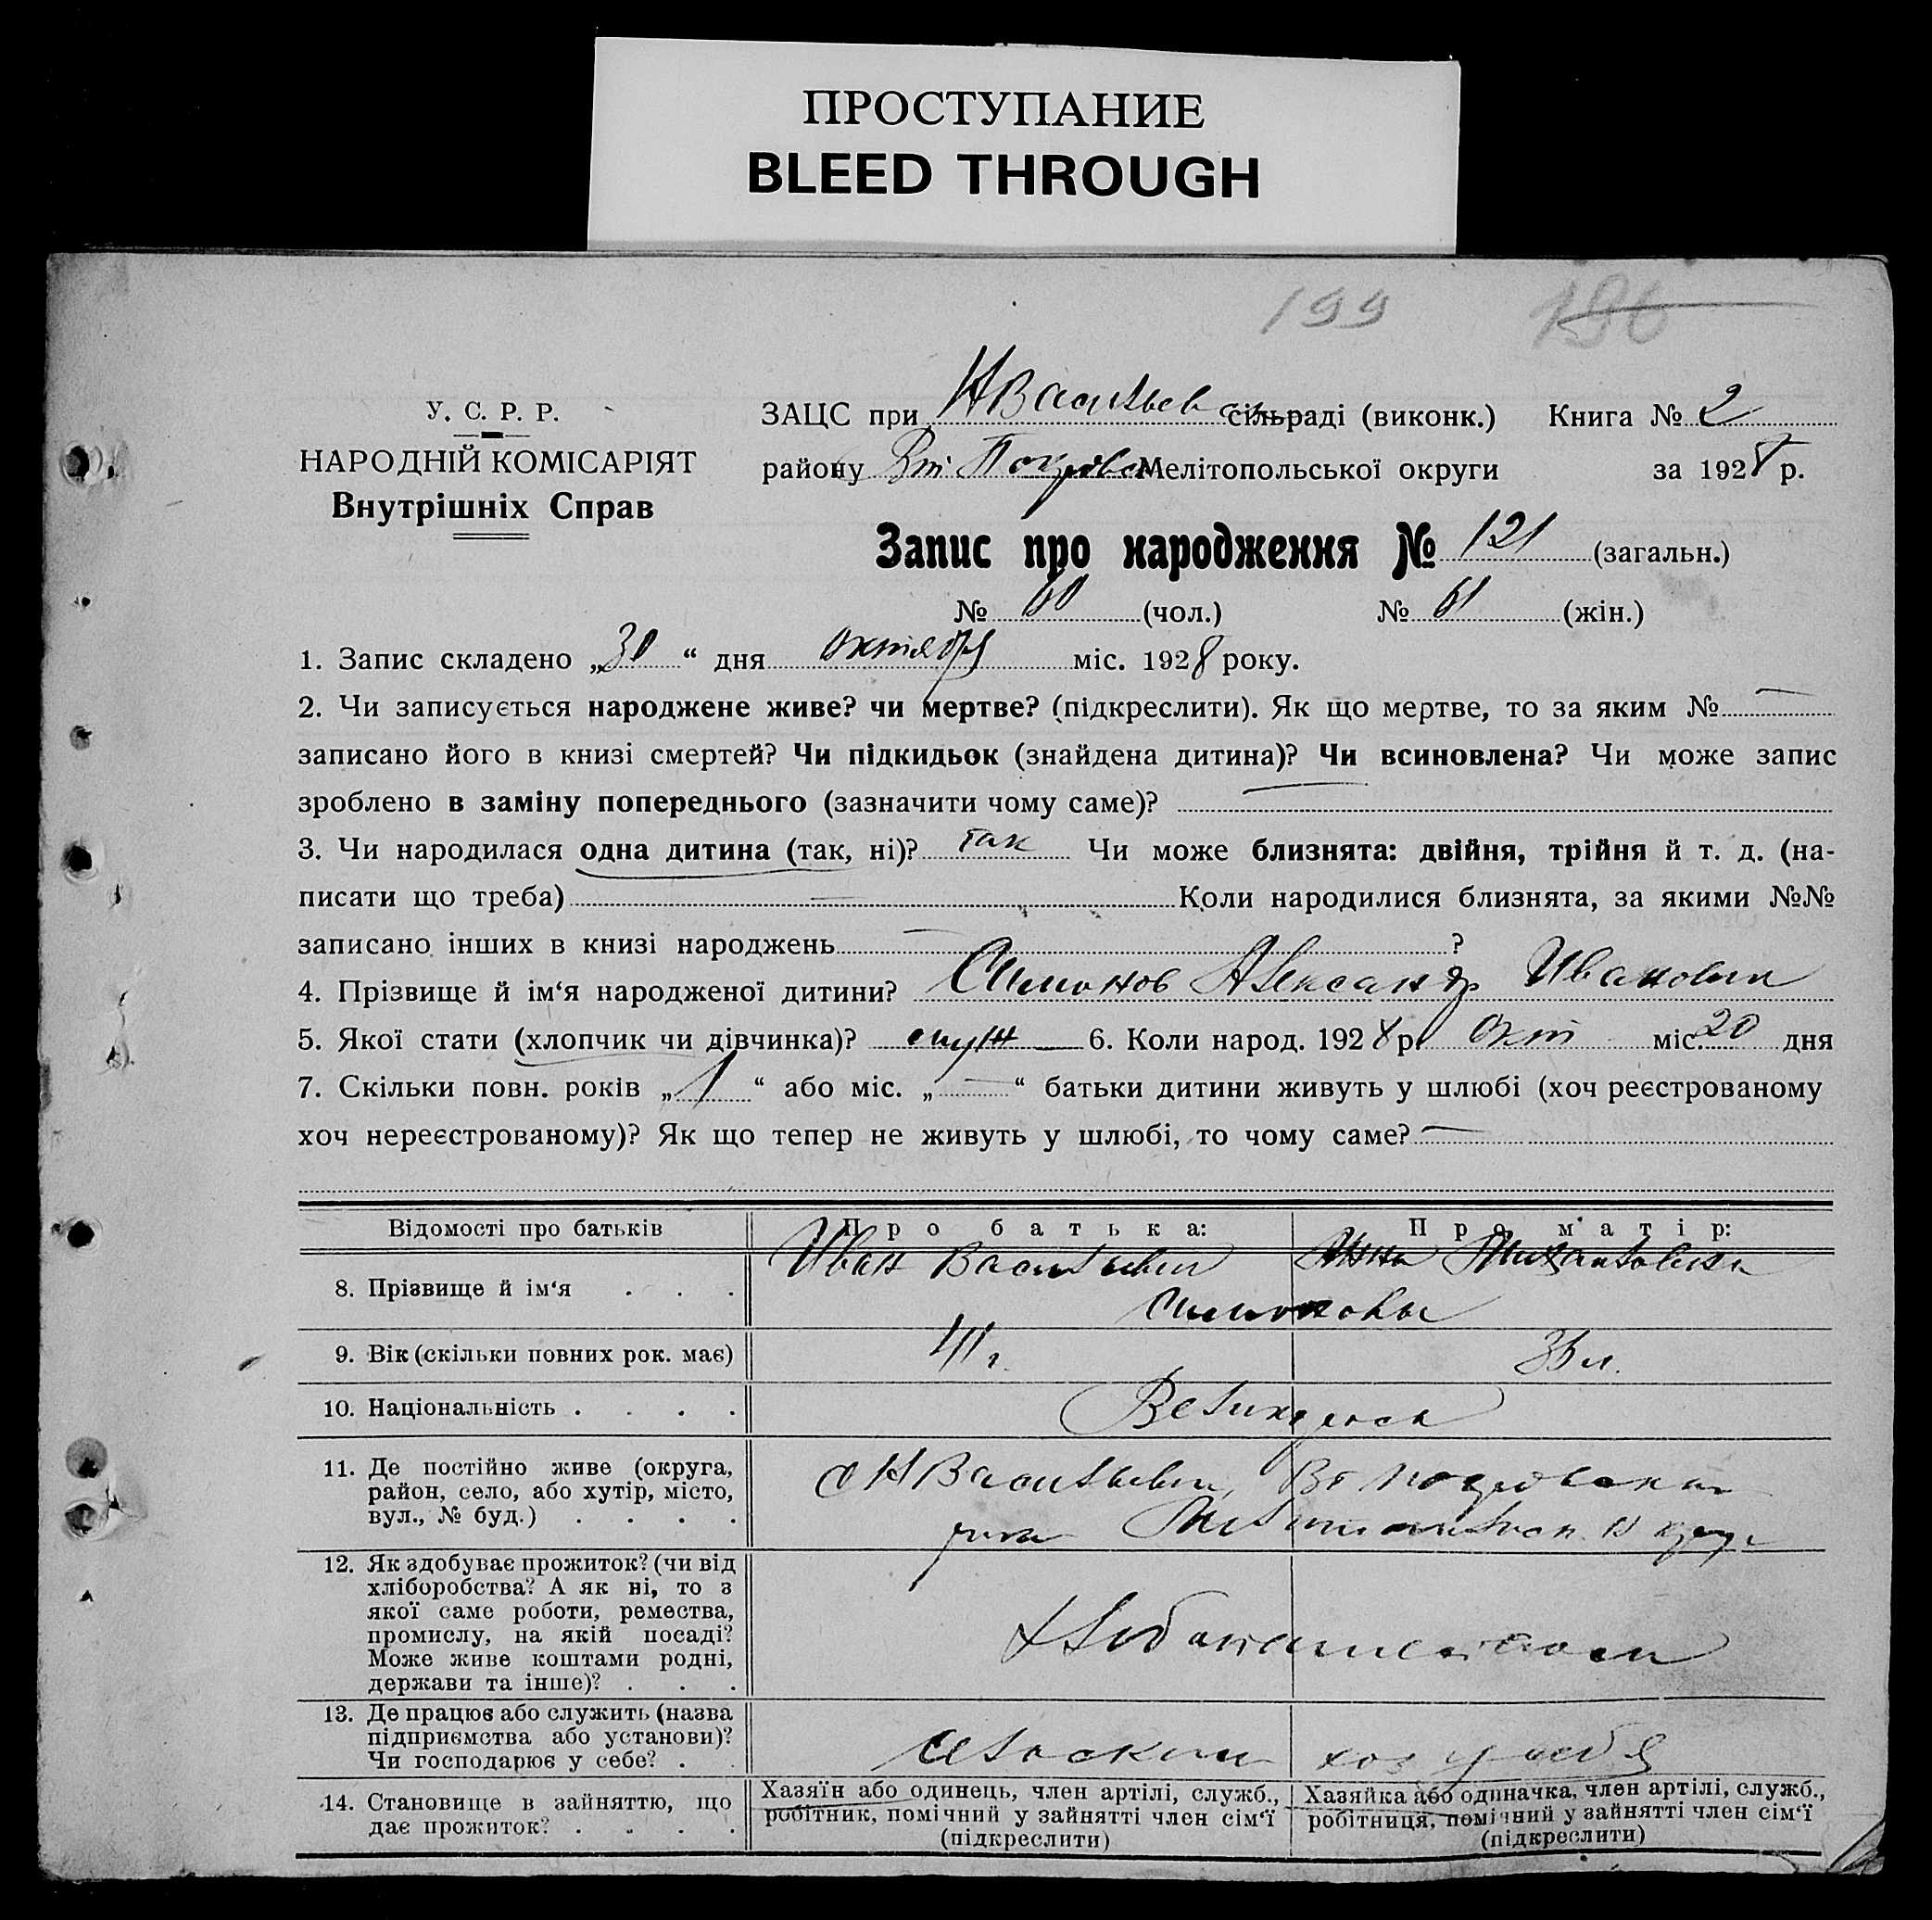 ПРОСТУПАНИЕ
BLEED THROUGH
199 196
У. С. Р. Р.
НАРОДНІЙ КОМІСАРІЯТ
Внутрішніх Справ
ЗАЦС при НВасильев сільраді (виконк.) Книга № 2
району Вт. Покровск Мелітопольської округи за 1928 р.
Запис про народження № 121 (загальн.)
№ 60 (чол.) № 61 (жін.)
1. Запис складено „30“ дня октября міс. 1928 року.
2. Чи записується народжене живе? чи мертве? (підкреслити). Як що мертве, то за яким № —
записано його в книзі смертей? Чи підкидьок (знайдена дитина)? Чи всиновлена? Чи може запис
зроблено в заміну попереднього (зазначити чому саме)? —
3. Чи народилася одна дитина (так, ні)? так Чи може близнята: двійня, трійня й т. д. (на-
писати що треба) — Коли народилися близнята, за якими №№
записано інших в книзі народжень — ?
4. Прізвище й ім‘я народженої дитини? Симонов Александр Иванович
5. Якої стати (хлопчик чи дівчинка)? муж 6. Коли народ. 1928 р. Окт міс. 20 дня
7. Скільки повн. років „1“ або міс. „—“ батьки дитини живуть у шлюбі (хоч реєстрованому
хоч нереєстрованому)? Як що тепер не живуть у шлюбі, то чому саме? —
Відомості про батьків Про батька: Про матір:
8. Прізвище й ім‘я . . . Иван Васильевич Анна Михайловна
Симоновы
9. Вік (скільки повних рок. має) 41 г. 36 л.
10. Національність . . . . Великорось
11. Де постійно живе (округа,
район, село, або хутір, місто,
вул., № буд.) . . . .
с НВасильевки, Вт Покровскаго
рина Мелитопольск. округа
12. Як здобуває прожиток? (чи від
хліборобства? А як ні, то з
якої саме роботи, ремества,
промислу, на якій посаді?
Може живе коштами родні,
держави та інше)? . . .
Хлебопашеством
13. Де працює або служить (назва
підприємства або установи)?
Чи господарює у себе? . .
сельским хоз у себя
14. Становище в зайняттю, що
дає прожиток? . . . .
Хазяїн або одинець, член артілі, служб.,
робітник, помічний у зайнятті член сім‘ї
(підкреслити)
Хазяйка або одиначка, член артілі, служб.,
робітниця, помічний у зайнятті член сім‘ї
(підкреслити)